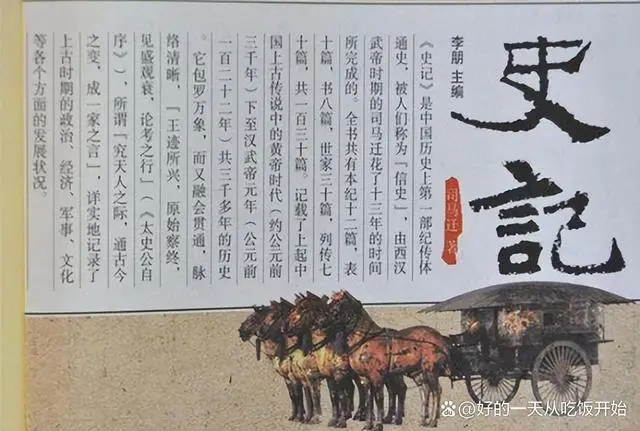 史記
司马迁 著
李朋 主编
《史记》是中国历史上第一部纪传体
通史，被人们称为“信史”，由西汉
武帝时期的司马迁花了十三年的时间
所完成的。全书共有本纪十二篇，表
十篇，书八篇，世家三十篇，列传七
十篇，共一百三十篇。记载了上起中
国上古传说中的黄帝时代（约公元前
三千年）下至汉武帝元年（公元前
一百二十二年）共三千多年的历史
。它包罗万象，而又融会贯通，脉
络清晰，“王迹所兴，原始察终，
见盛观衰，论考之行”（《太史公自
序》），所谓“究天人之际，通古今
之变，成一家之言”，详实地记录了
上古时期的政治、经济、军事、文化
等各个方面的发展状况。
@好的一天从吃饭开始